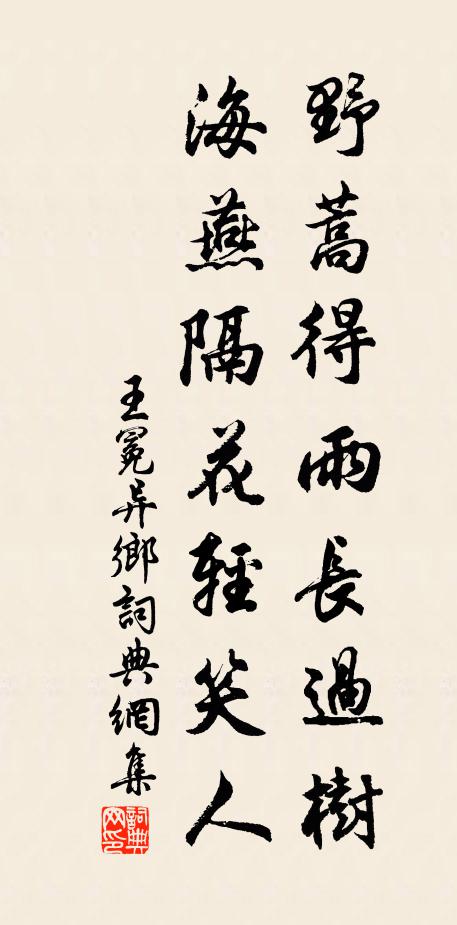 野蒿得雨長過樹
海燕隔花輕笑人
王冕异鄉詞典網集
詞典网印